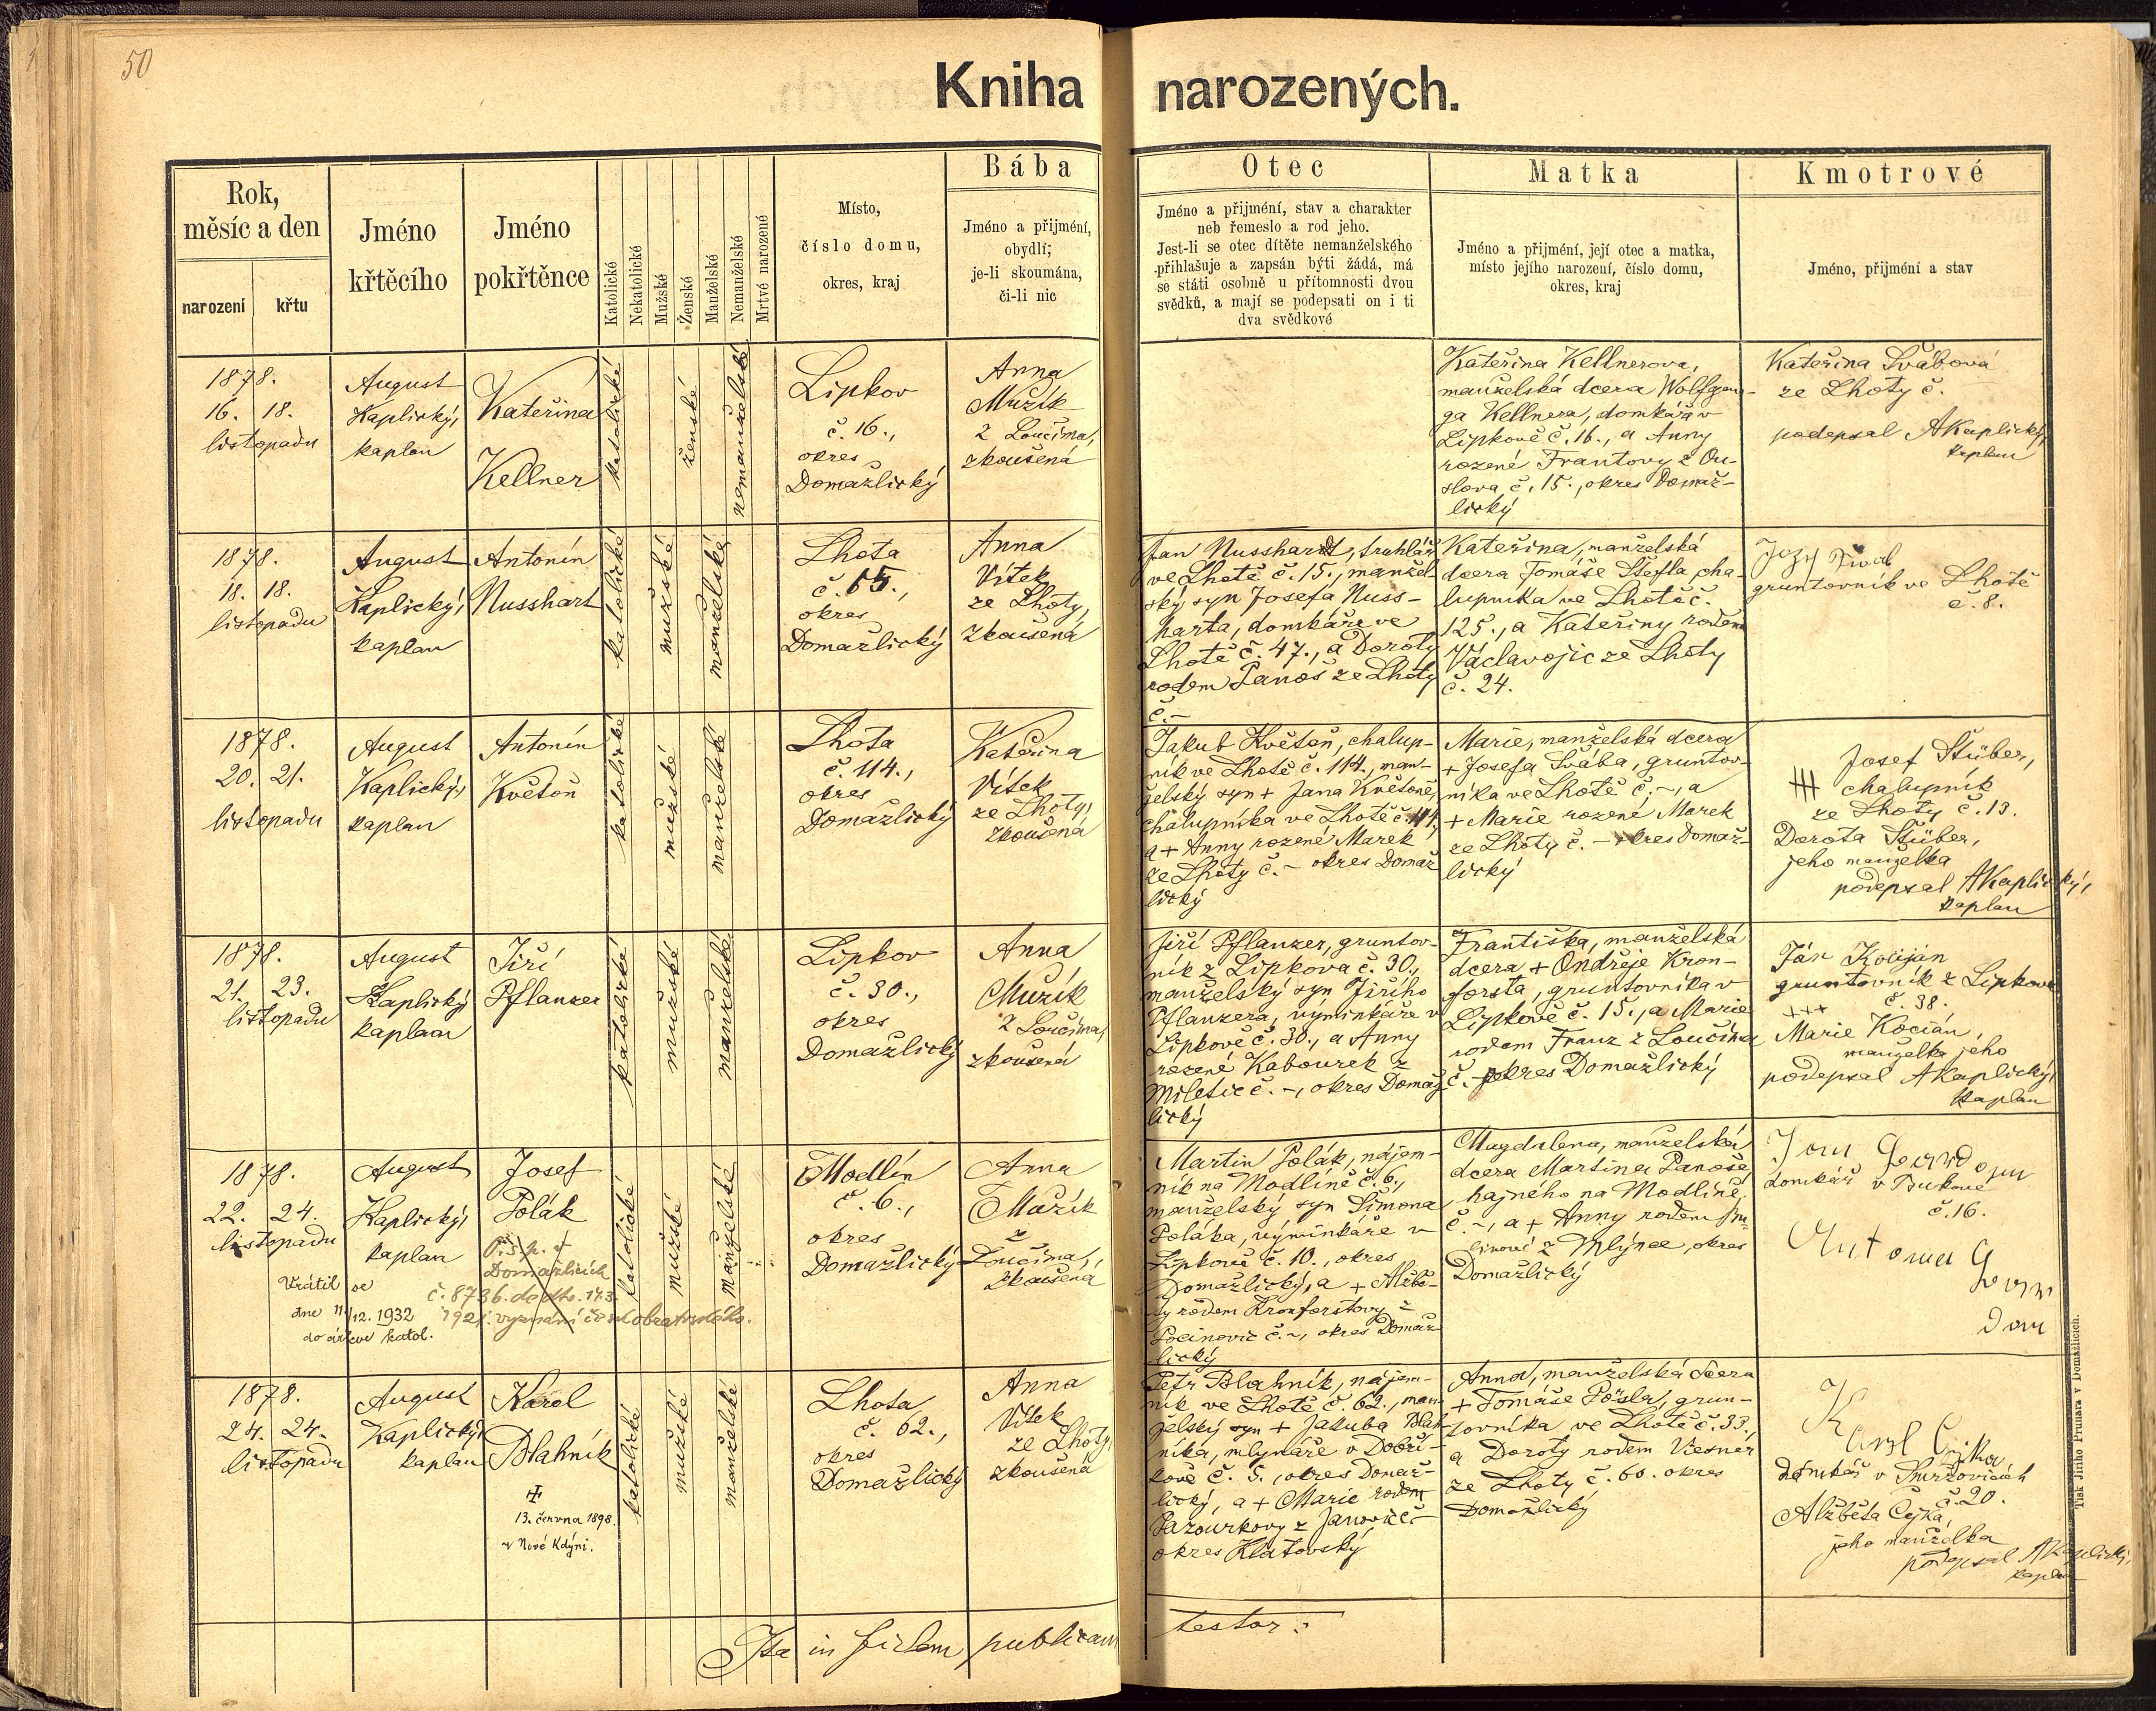 50
Kniha narozených.
Rok,
měsíc a den
narození
křtu
Jméno
křtěcího
Jméno
pokřtěnce
Katolické
Nekatolické
Mužské
Ženské
Manželské
Nemanželské
Mrtvé narozené
Místo,
číslo domu,
okres, kraj
Bába
Jméno a přijmení,
obydlí;
je-li skoumána,
či-li nic
Otec
Jméno a přijmení, stav a charakter
neb řemeslo a rod jeho.
Jest-li se otec dítěte nemanželského
přihlašuje a zapsán býti žádá, má
se státi osobně u přítomnosti dvou
svědků, a mají se podepsati on i ti
dva svědkové
Matka
Jméno a přijmení, její otec a matka,
místo jejího narození, číslo domu,
okres, kraj
Kmotrové
Jméno, přijmení a stav
1878.
16. 18.
listopadu
August
Kaplický,
kaplan
Kateřina
Kellner
katolické
ženské
nemanželské
Lipkov
č. 16.,
okres
Domažlický
Anna
Mužík
z Loučima,
zkoušená
Kateřina Kellnerova,
manželská dcera Wolfgan-
ga Kellnera, domkáře v
Lipkově č. 16., a Anny
rozené Frantovy z Ou-
slova č. 15., okres Domaž-
lický
Kateřina Švábová
ze Lhoty č.
podepsal AKaplický,
kaplan
1878.
18. 18.
listopadu
August
Kaplický,
kaplan
Antonín
Nusshart
katolické
mužské
manželské
Lhota
č. 15.,
okres
Domažlický
Anna
Vítek
ze Lhoty,
zkoušená
Jan Nusshardt, truhlář
ve Lhotě č. 15., manžel-
ský syn Josefa Nuss-
harta, domkáře ve
Lhotě č. 47., a Doroty
rodem Panoš ze Lhoty
č. –
Kateřina, manželská
dcera Tomáše Štefla, cha-
lupníka ve Lhotě č.
125., a Kateřiny rodem
Václavojic ze Lhoty
č. 24.
gruntovník ve Lhotě
č. 8.
1878.
20. 21.
listopadu
August
Kaplický,
kaplan
Antonín
Květoň
katolické
mužské
manželské
Lhota
č. 114.,
okres
Domažlický
Kateřina
Vítek
ze Lhoty,
zkoušená
Jakub Květoň, chalup-
ník ve Lhotě č. 114., man-
želský syn + Jana Květoně,
chalupníka ve Lhotě č. 114,
a + Anny rozené Marek
ze Lhoty č. – okres Domaž-
lický
Marie, manželská dcera
+ Josefa Švába, gruntov-
níka ve Lhotě č. –, a
+ Marie rozené Marek
ze Lhoty č. – okres Domaž-
lický
Josef Stüber,
+++ chalupník
ze Lhoty č. 13.
Dorota Stüber,
jeho manželka
podepsal AKaplický,
kaplan
1878.
21. 23.
listopadu
August
Kaplický
kaplan
Jiří
Pflanzer
katolické
mužské
manželské
Lipkov
č. 30.,
okres
Domažlický
Anna
Mužík
z Loučima,
zkoušená
Jiří Pflanzer, gruntov-
ník z Lipkova č. 30.,
manželský syn Jiřího
Pflanzera, výminkáře v
Lipkově č. 30., a Anny
rozené Kabourek z
Miletic č. –, okres Domaž-
lický
Františka, manželská
dcera + Ondřeje Kron-
forsta, gruntovníka v
Lipkově č. 15., a Marie
rodem Franz z Loučima
č. – okres Domažlický
Ján Kociján
gruntovník z Lipkova
+++ č. 38.
Marie Kocián,
manželka jeho
podepsal AKaplický,
kaplan
1878.
22. 24.
listopadu
August
Kaplický,
kaplan
Josef
Polák
katolické
mužské
manželské
Modlín
č. 6.,
okres
Domažlický
Anna
Mužík
z
Loučima,
zkoušená
O. s. p. v
Domažlicích
č. 8736. de dto. 17.3.
1921. vyznání československého.
Vrátil se
dne 11./12. 1932
do církve katol.
Martin Polák, nájem-
ník na Modlíně č. 6.,
manželský syn Šimona
Poláka, výminkáře v
Lipkově č. 10., okres
Domažlický, a + Alžbě-
ty rodem Kronforstovy z
Pocinovic č. –, okres Domaž-
lický
Magdalena, manželská
dcera Martina Panoše,
hajného na Modlíně,
č. –, a + Anny rodem
z Mlýnce, okres
Domažlický
domkář v
č. 16.
1878.
24. 24.
listopadu
August
Kaplický,
kaplan
Karel
Blahník
13. června 1898.
v Nové Kdýni.
katolické
mužské
manželské
Lhota
č. 62.,
okres
Domažlický
Anna
Vítek
ze Lhoty,
zkoušená
Petr Blahník, nájem-
ník ve Lhotě č. 62., man-
želský syn + Jakuba Blah-
níka, mlynáře v Dobří-
kově č. 5., okres Domaž-
lický, a + Marie rodem
Pazourkovy z Janovic č. –
okres Klatovský
Anna, manželská dcera
+ Tomáše Pösla, grun-
tovníka ve Lhotě č. 33.,
a Doroty rodem Vesner
ze Lhoty č. 60. okres
Domažlický
Karel Čejka,
domkář v Smržovicích
č. 20.
Alžběta Čejka,
jeho manželka
podepsal AKaplický,
kaplan
Ita in fidem publicam testor:
Tisk Jiřího Prunara v Domažlicích.